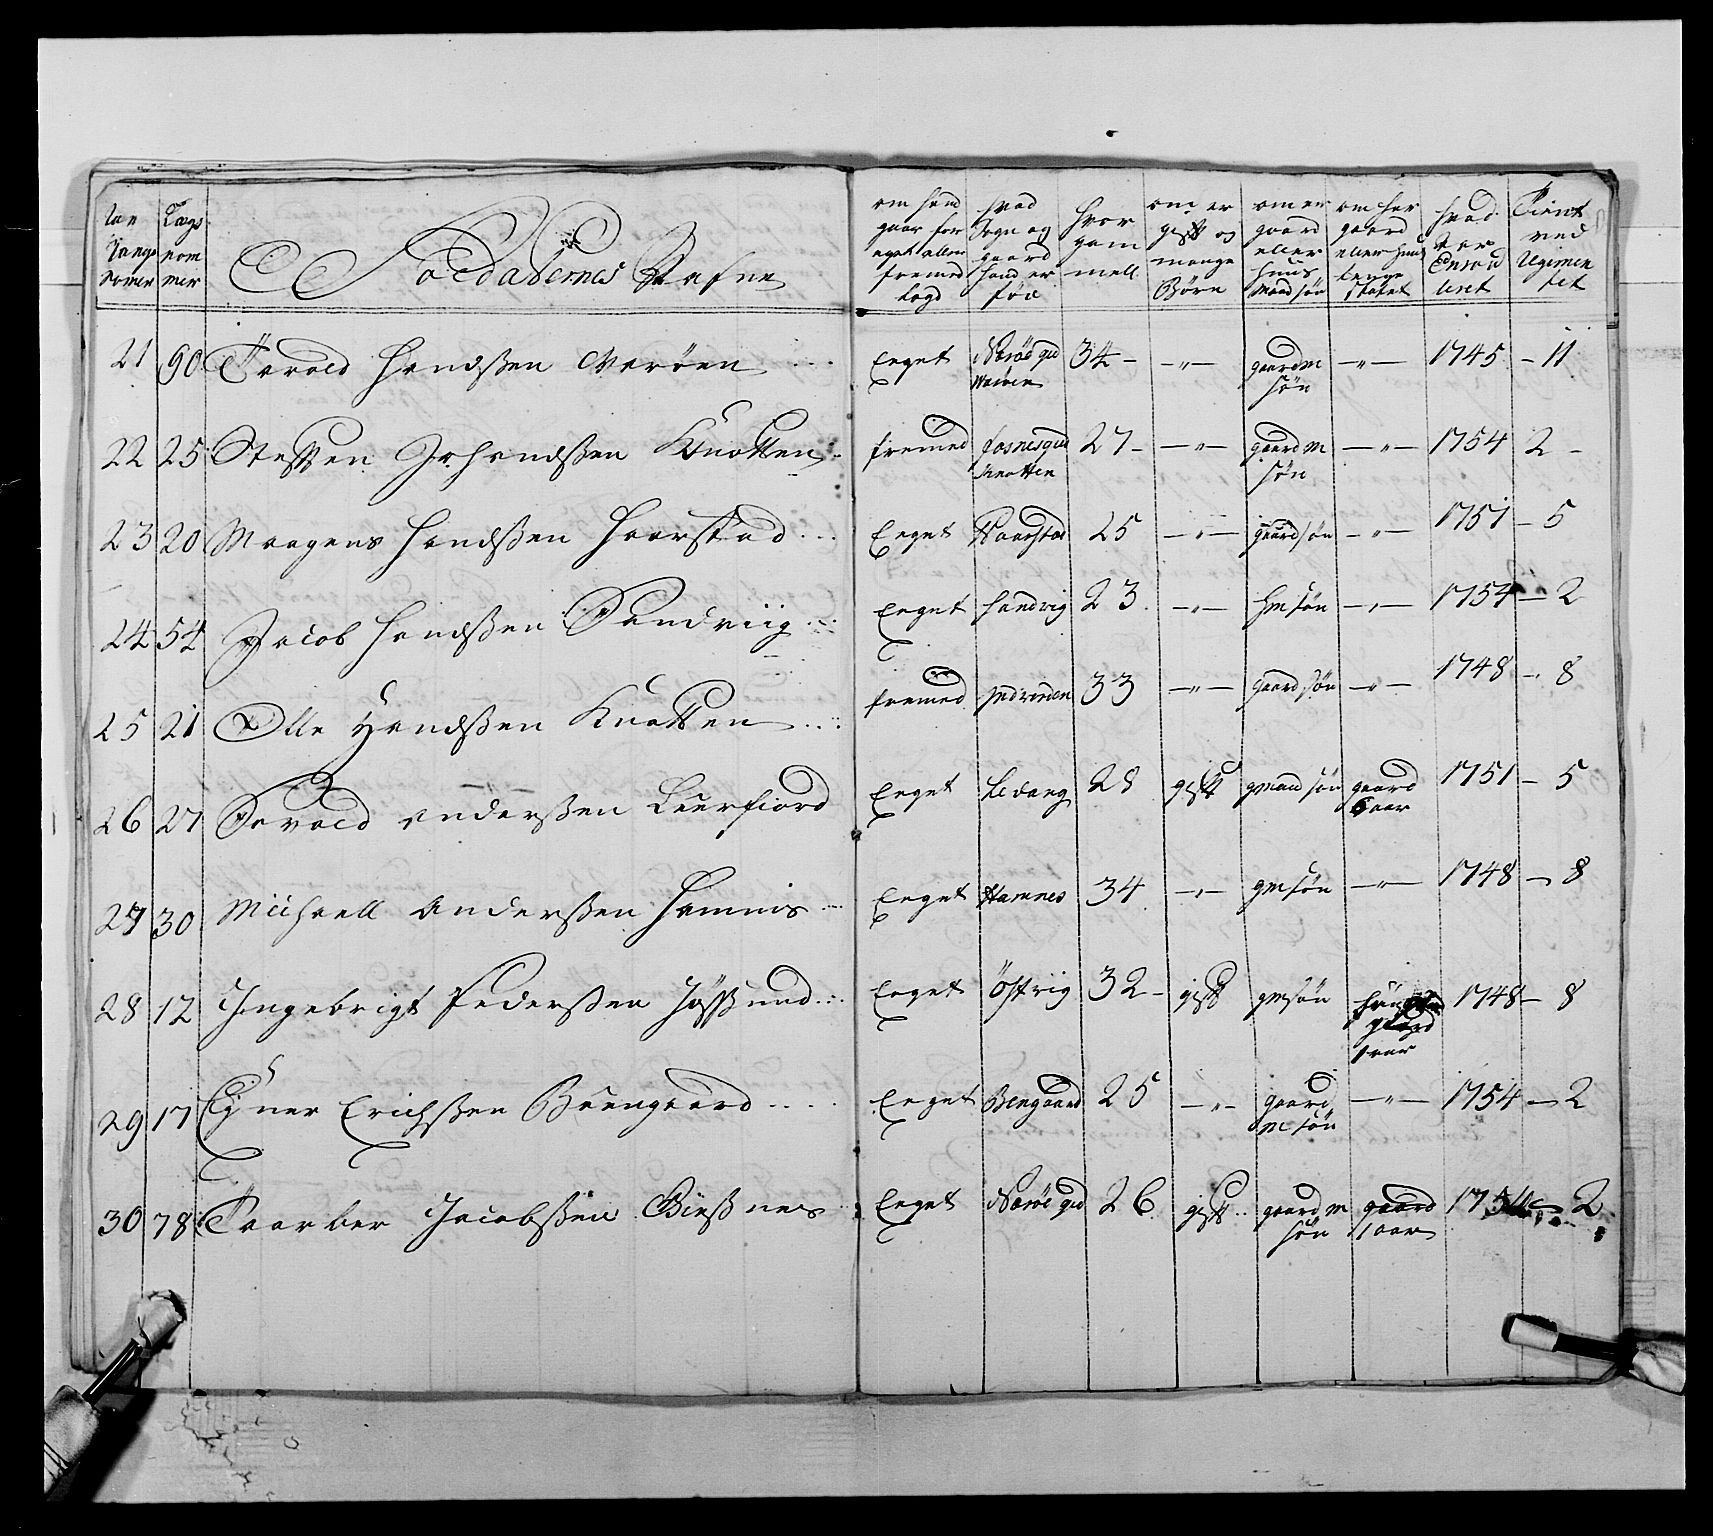 Rangs nomer Lægs nommer Soldaternes Nafne om hand gaar for eget eller fremmed Lægd hvad Sogn og gaard hand er fød hvor gammell om er gift og mange Børn om er gaard eller huus Mand søn om har gaard eller huus lenge hvad aar Enroulleret Tient ved Regimentet
21 90 Harald Handsßen Værøen Eeget Nærøe gield Værøen 34 – „ – gaardm søn – „ – 1745 – 11
22 25 Steffen Johandsßen Knotten fremed fosnes gield Knotten 27 – „ – gaardm søn – „ – 1754 2 –
23 20 Maagens Handsßen Haarstad Eeget Haarstad 25 – „ – gaardsøn – „ – 1751 – 5
24 54 Jacob Handsßen Sandviig Eeget Sandvig 23 – „ – hmsøn – „ – 1754 – 2
25 21 Olle Handsßen Knotten fremed 33 – „ – gaardsøn – „ – 1748 – 8
26 27 Sevald Andersßen Leerfiord Eeget Levang 28 gift gmand søn gaard 6 aar 1751 – 5
27 30 Michaell Andersßen Hamnis Eeget Hamnes 34 – „ – gmsøn – „ – 1748 – 8
28 12 Ingebrigt Pedersßen Jøssund Eeget Østvig 32 – gift gmsøn gaard 1 aar 1748 – 8
29 17 Ejner Erichsßen Beengaard Eeget Bengaard 25 – „ – gaard m søn – „ – 1754 – 2
30 78 Haarber Jacobsßen Bießnes Eeget Nærøe gield 26 gift gaardm søn gaard 1 aar 1754 – 2